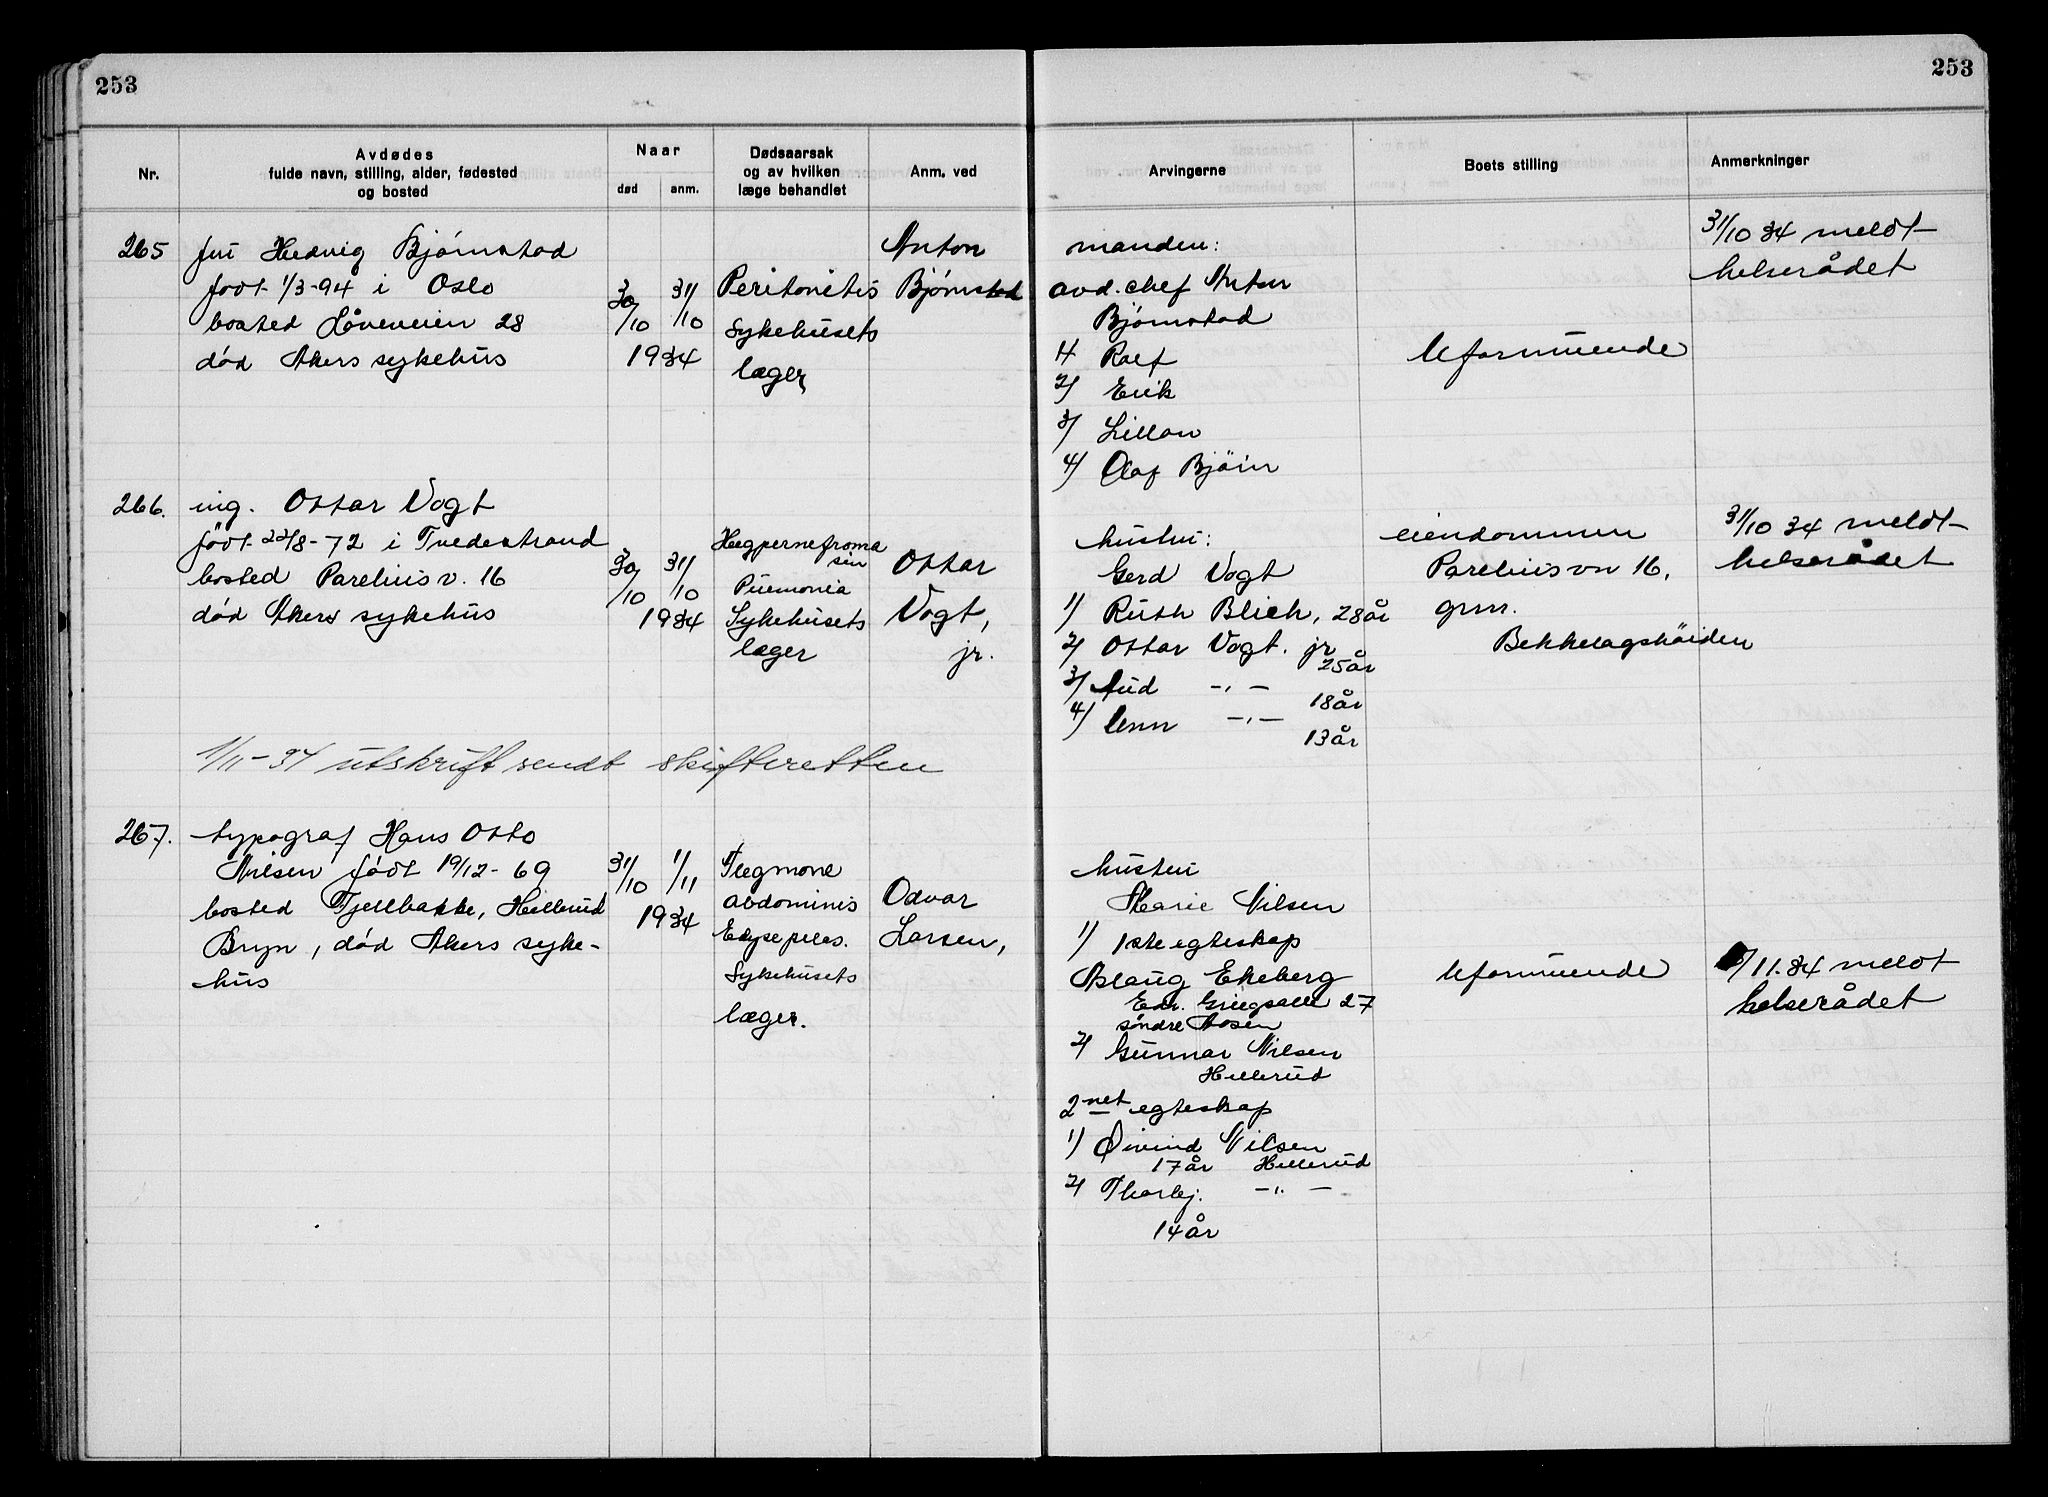 253
253
Nr.
Avdødes
fulde navn, stilling, alder, fødested
og bosted
Naar
død
anm.
Dødsaarsak
og av hvilken
læge behandlet
Anm. ved
Arvingerne
Boets stilling
Anmerkninger
265
fru Hedvig Bjørnstad
født 1/3-94 i Oslo
bosted Låveveien 28
død Akers sykehus
30/10
31/10
1934
Peritonitis
Sykehusets
læger
Anton
Bjørnstad
manden:
avd. chef Anton
Bjørnstad
1/ Rolf
2/ Erik
3/ Lillan
4/ Olaf Bjørn
Uformuende
31/10 34 meldt
helserådet
266.
ing. Ottar Vogt
født 22/8-72 i Tvedestrand
bosted Pareliusv. 16
død Akers sykehus
30/10
31/10
1934
Pnemonia
Sykehusets
læger
Ottar
Vogt,
jr.
hustru:
Gerd Vogt
1/ Ruth Blich, 28 år
2/ Ottar Vogt. jr
25 år
3/ Aud -"-
18 år
4/ Unn -"-
13 år
eiendommen
Pareliusvn 16,
grnr.
Bekkelagshöiden
31/10 34 meldt
helserådet
1/11-34 utskrift sendt skifteretten
267.
typograf Hans Otto
Nilsen født 19/12-69
bosted Fjellbakke, Hellerud
Bryn, død Akers syke-
hus
31/10
1/11
1934
Flegmone
abdominis
Sykehusets
læger.
Odvar
Larsen,
hustru
Marie Nilsen
1/ 1ste egteskap
Aslaug Ekeberg
Edv. Griegsalle 27
søndre Aasen
2/ Gunnar Nilsen
Hellerud
2net egteskap
1/ Øivind Nilsen
17 år Hellerud
2/ Thorbj. -"-
14 år
Uformuende
/11.34 meldt
helserådet